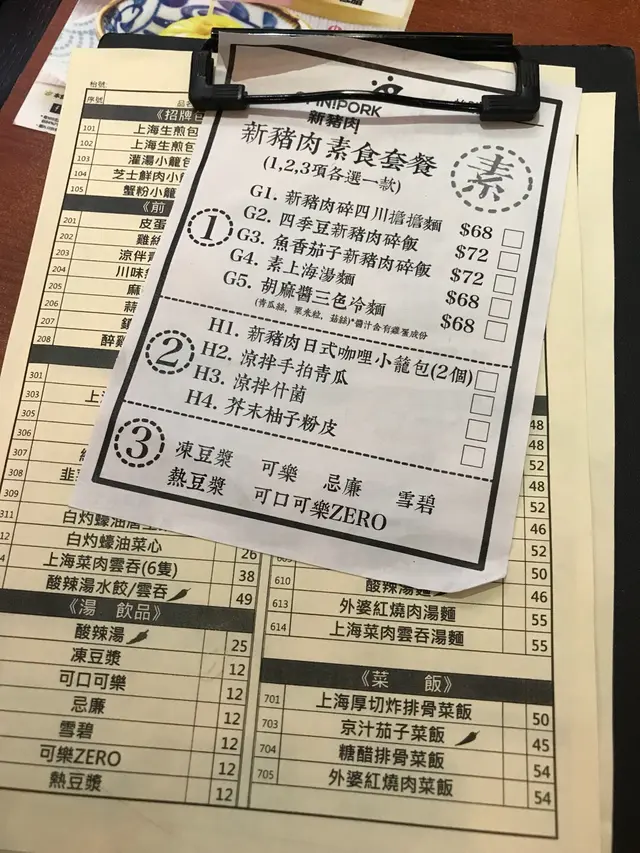 OMNIPORK
新豬肉
新豬肉素食套餐
(1,2,3項各選一款)
素
1
G1. 新豬肉碎四川擔擔麵 $68
G2. 四季豆新豬肉碎飯 $72
G3. 魚香茄子新豬肉碎飯 $72
G4. 素上海湯麵 $68
G5. 胡麻醬三色冷麵 $68
(青瓜絲, 粟米粒, 菇絲)*醬汁含有雞蛋成份
2
H1. 新豬肉日式咖哩小籠包(2個)
H2. 涼拌手拍青瓜
H3. 涼拌什菌
H4. 芥末柚子粉皮
3
凍豆漿 可樂 忌廉 雪碧
熱豆漿 可口可樂ZERO
枱號:
序號
《招牌包
101 上海生煎包
102 上海生煎包
103 灌湯小籠包
104 芝士鮮肉小
105 蟹粉小籠
《前
201 皮蛋
202 雞絲
203 涼伴
204 川味
205 麻
206 蒜
207
208 醉雞
301
303 上
305
306
307
308 韮
309
311 白灼蠔油唐生
白灼蠔油菜心 26
上海菜肉雲吞(6隻) 38
酸辣湯水餃/雲吞 49
《湯 飲品》
酸辣湯 25
凍豆漿 12
可口可樂 12
忌廉 12
雪碧 12
可樂ZERO 12
熱豆漿 12
48
48
52
48
52
46
52
50
610 酸辣湯麵 46
613 外婆紅燒肉湯麵 55
614 上海菜肉雲吞湯麵 55
《菜 飯》
701 上海厚切炸排骨菜飯 50
703 京汁茄子菜飯 45
704 糖醋排骨菜飯 54
705 外婆紅燒肉菜飯 54